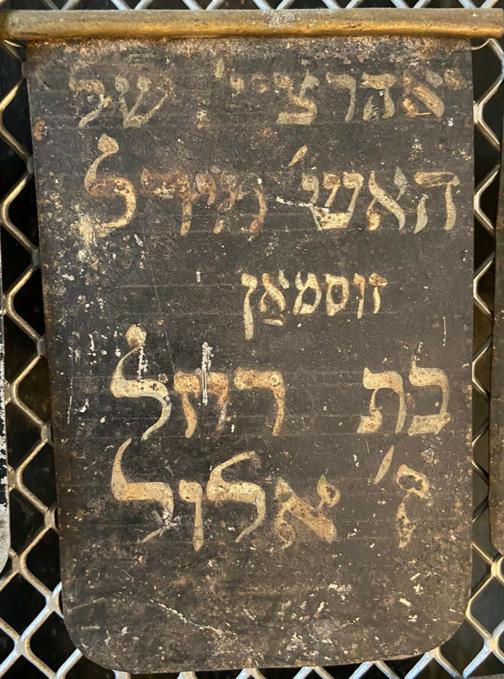 יאהרציי' של
האש' מירל
זוסמאַן
בת רחל
ז' אלול